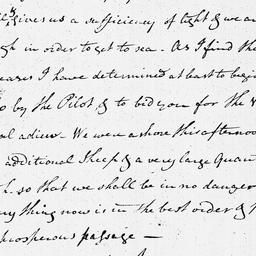 gives us a sufficiency of light & we an
gh in order to get to sea. As I find the
eases I have determined at least to begin
by the Pilot, & to bid you for the
adieu. We were ashore this afternoon
additional Sheep & a very large Quan
h. so that we shall be in no danger
ny thing now is in the best order &
prosperous passage —